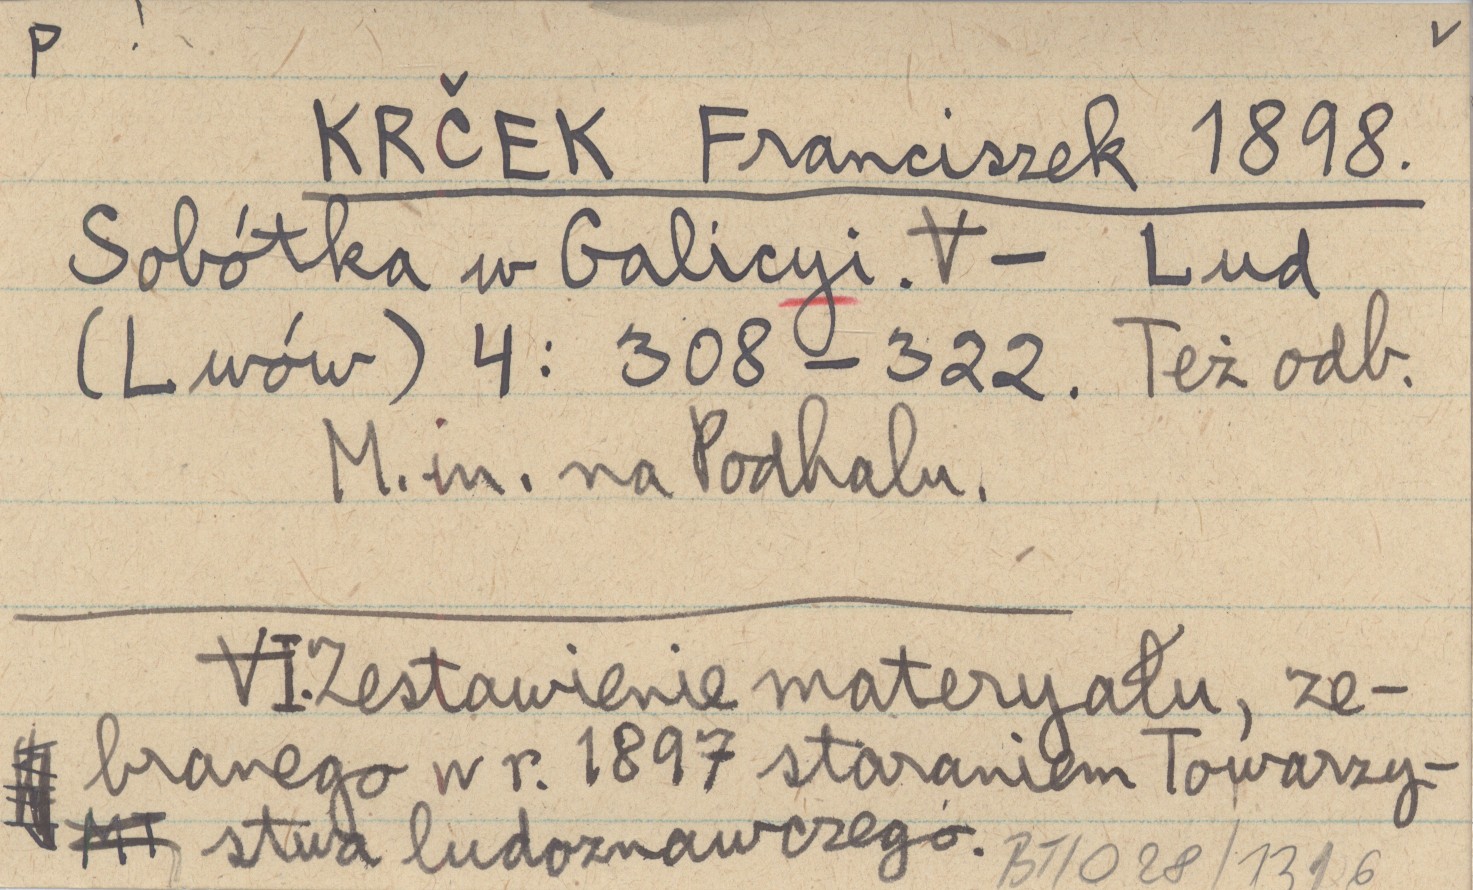 P v
KRČEK Franciszek 1898.
Sobótka w Galicyi. V – Lud
(Lwów) 4: 308–322. Też odb.
M. in. na Podhalu.
VI. Zestawienie materyału, ze-
branego w r. 1897 staraniem Towarzy-
stwa ludoznawczego.
BT/O 28/1316